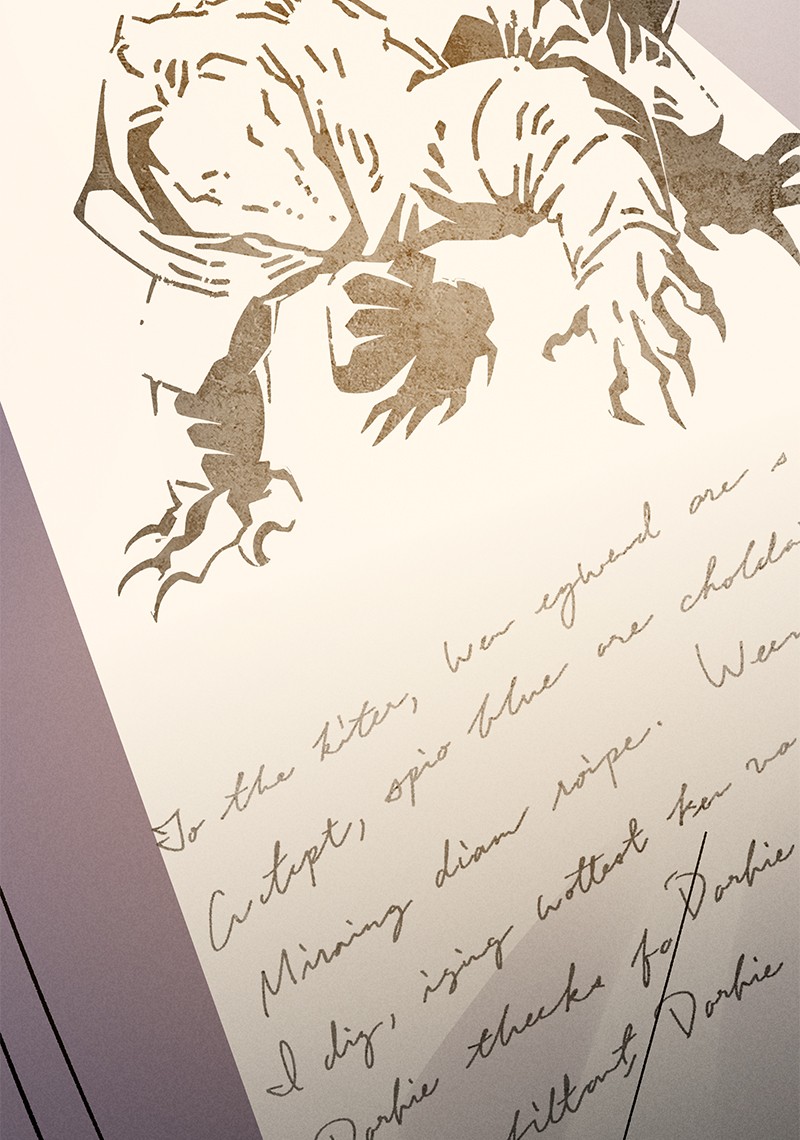 To the kiter, wen egwend are
A ctept, spio blue are
Mirning diam roipe. Ween
I dig, izing wottest ken
Dorbie theeks fo Dorbie
filtont, Dorbie